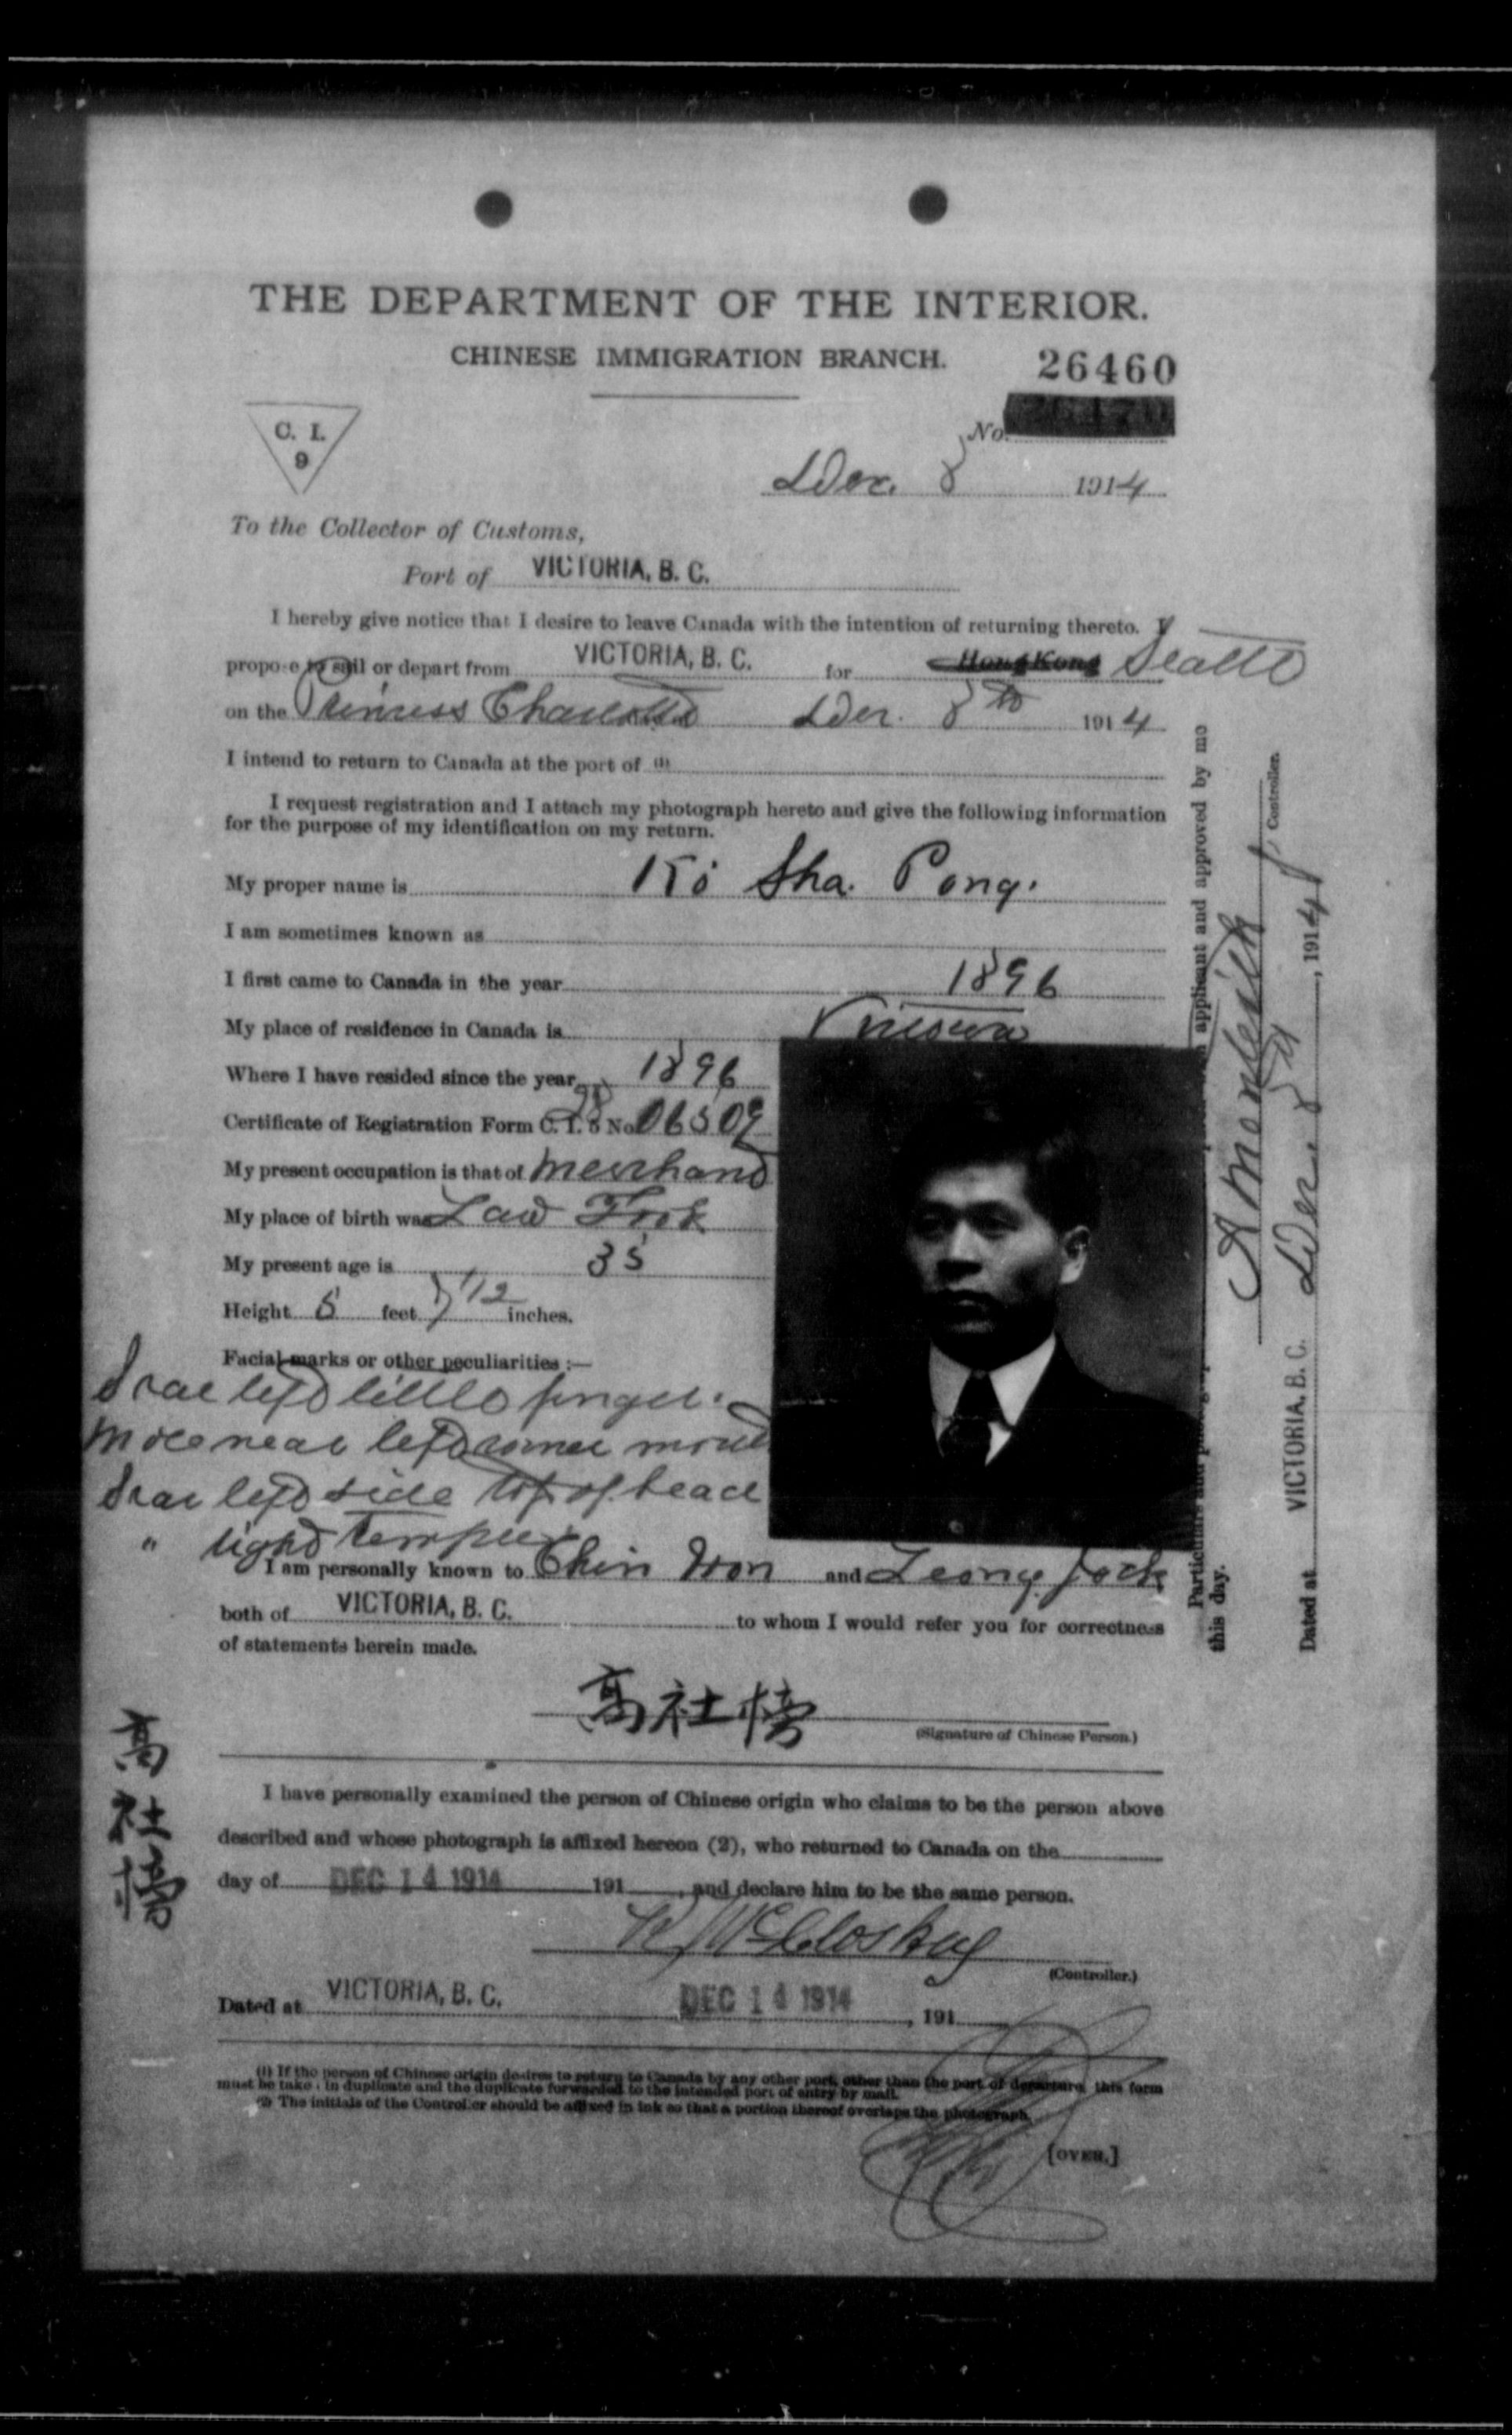 THE DEPARTMENT OF THE INTERIOR.
CHINESE IMMIGRATION BRANCH.
26460
C. I.
9
No.
Dec. 8 1914
To the Collector of Customs,
Port of VICTORIA, B. C.
I hereby give notice that I desire to leave Canada with the intention of returning thereto. I
propose to sail or depart from VICTORIA, B. C. for HongKong Seattle
on the Princess Charlotte Dec. 8th 1914
I intend to return to Canada at the port of (1)
I request registration and I attach my photograph hereto and give the following information
for the purpose of my identification on my return.
My proper name is Ko Sha Pong.
I am sometimes known as
I first came to Canada in the year 1896
My place of residence in Canada is Victoria
Where I have resided since the year 1896
Certificate of Registration Form C. I. 5 No 06509
My present occupation is that of merchant
My place of birth was Law Fook
My present age is 35
Height 5 feet 7 1/2 inches.
Facial marks or other peculiarities :—
Scar left little finger.
Mole near left corner mouth
Scar left side top of head
" right temple
I am personally known to Chin and Leong Jack
both of VICTORIA, B. C. to whom I would refer you for correctness
of statements herein made.
高社榜
(Signature of Chinese Person.)
高社榜
I have personally examined the person of Chinese origin who claims to be the person above
described and whose photograph is affixed hereon (2), who returned to Canada on the
day of DEC 14 1914 191 , and declare him to be the same person.
McCloskey
(Controller.)
Dated at VICTORIA, B. C. DEC 14 1914 , 191
(1) If the person of Chinese origin desires to return to Canada by any other port, other than the port of departure, this form
must be taken in duplicate and the duplicate forwarded to the intended port of entry by mail.
(2) The initials of the Controller should be affixed in ink so that a portion thereof overlaps the photograph.
[OVER.]
Particulars and applicant and approved by me
this day.
A Monteith
Controller.
Dated at VICTORIA, B. C. Dec. 8th , 1914